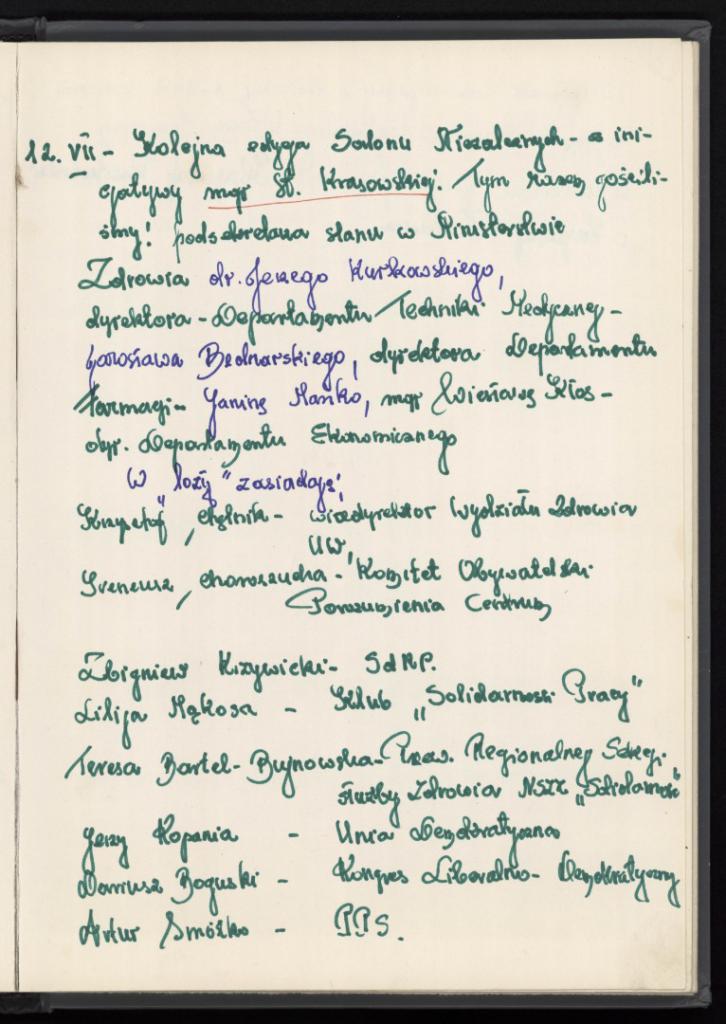 12. VII - Kolejna edycja Salonu Niezależnych - z ini-
cjatywy mgr St. Krasowskiej. Tym razem gościli-
śmy! podsekretarza stanu w Ministerstwie
Zdrowia dr. Jerzego Kurkowskiego,
dyrektora - Departamentu Techniki Medycznej -
Jarosława Bednarskiego, dyrektora Departamentu
Farmacji - Janinę Mańko, mgr Kłos -
dyr. Departamentu Ekonomicznego
W "loży" zasiadają:
Krzysztof - wicedyrektor Wydziału Zdrowia
UW,
Ireneusz - Komitet Obywatelski
Porozumienia Centrum
Zbigniew Krzywicki - SdRP.
Lilija Mąkosa - Klub "Solidarności Pracy"
Teresa Bartel-Bujnowska - Przew. Regionalnej Sekcji
Służby Zdrowia NSZZ "Solidarność"
Jerzy Kopania - Unia Demokratyczna
Dariusz Boguski - Kongres Liberalno-Demokratyczny
Artur Smółko - PPS.